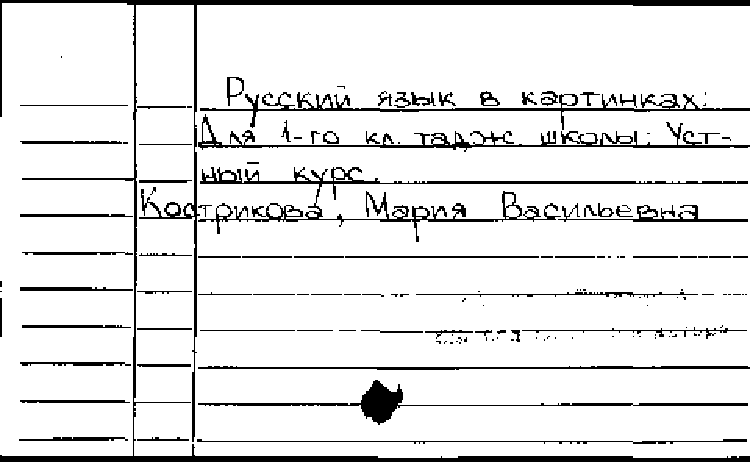 Русский язык в картинках:
Для 1-го кл. тадж. школы: Уст-
ный курс.
Кострикова, Мария Васильевна